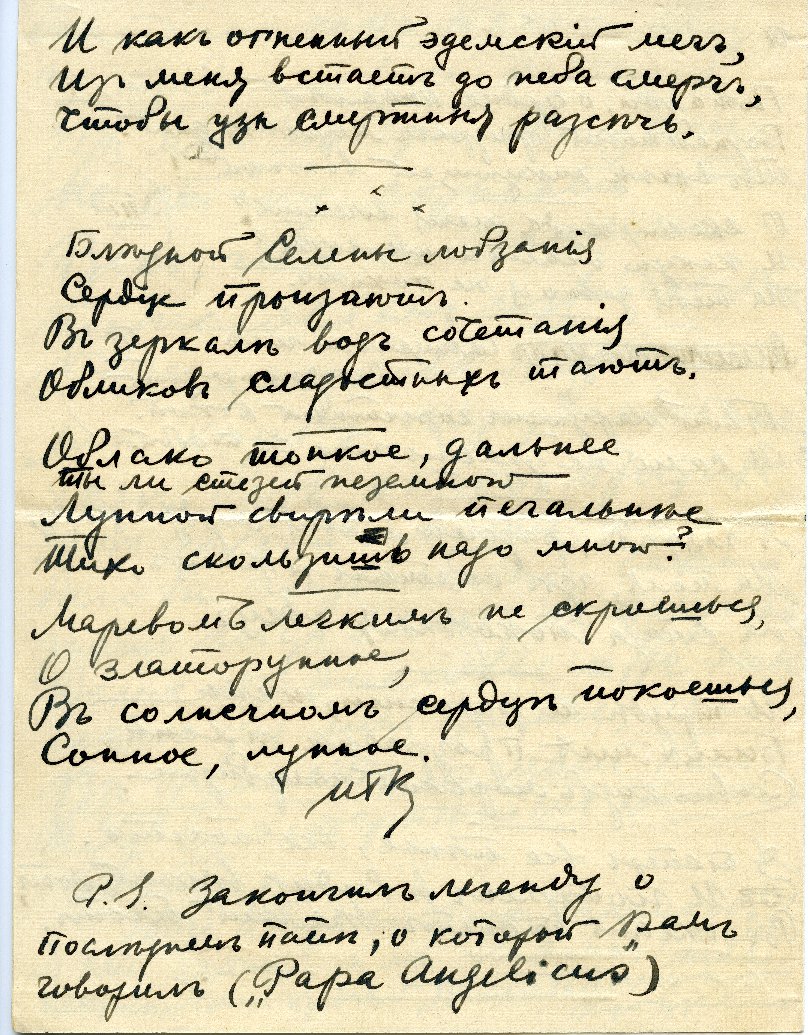 И какъ огненный эдемскій мечъ,
Изъ меня встаетъ до неба смерчъ,
Чтобы узы смертныя разсѣчь.
Блѣдной Селены лобзанія
Сердце пронзаютъ.
Въ зеркалѣ водъ сочетанія
Обликовъ сладостныхъ таютъ.
Облако тонкое, дальнее
ты ли стезей неземною
Лунной свирѣли печальнѣе
Тихо скользишь надо мною?
Маревомъ легкимъ не скроешься,
О златорунное,
Въ солнечномъ сердцѣ покоешься,
Сонное, лунное.
P.S. Закончилъ легенду о
послѣднемъ папѣ, о которой Вамъ
говорилъ („Papa Angelicus”)